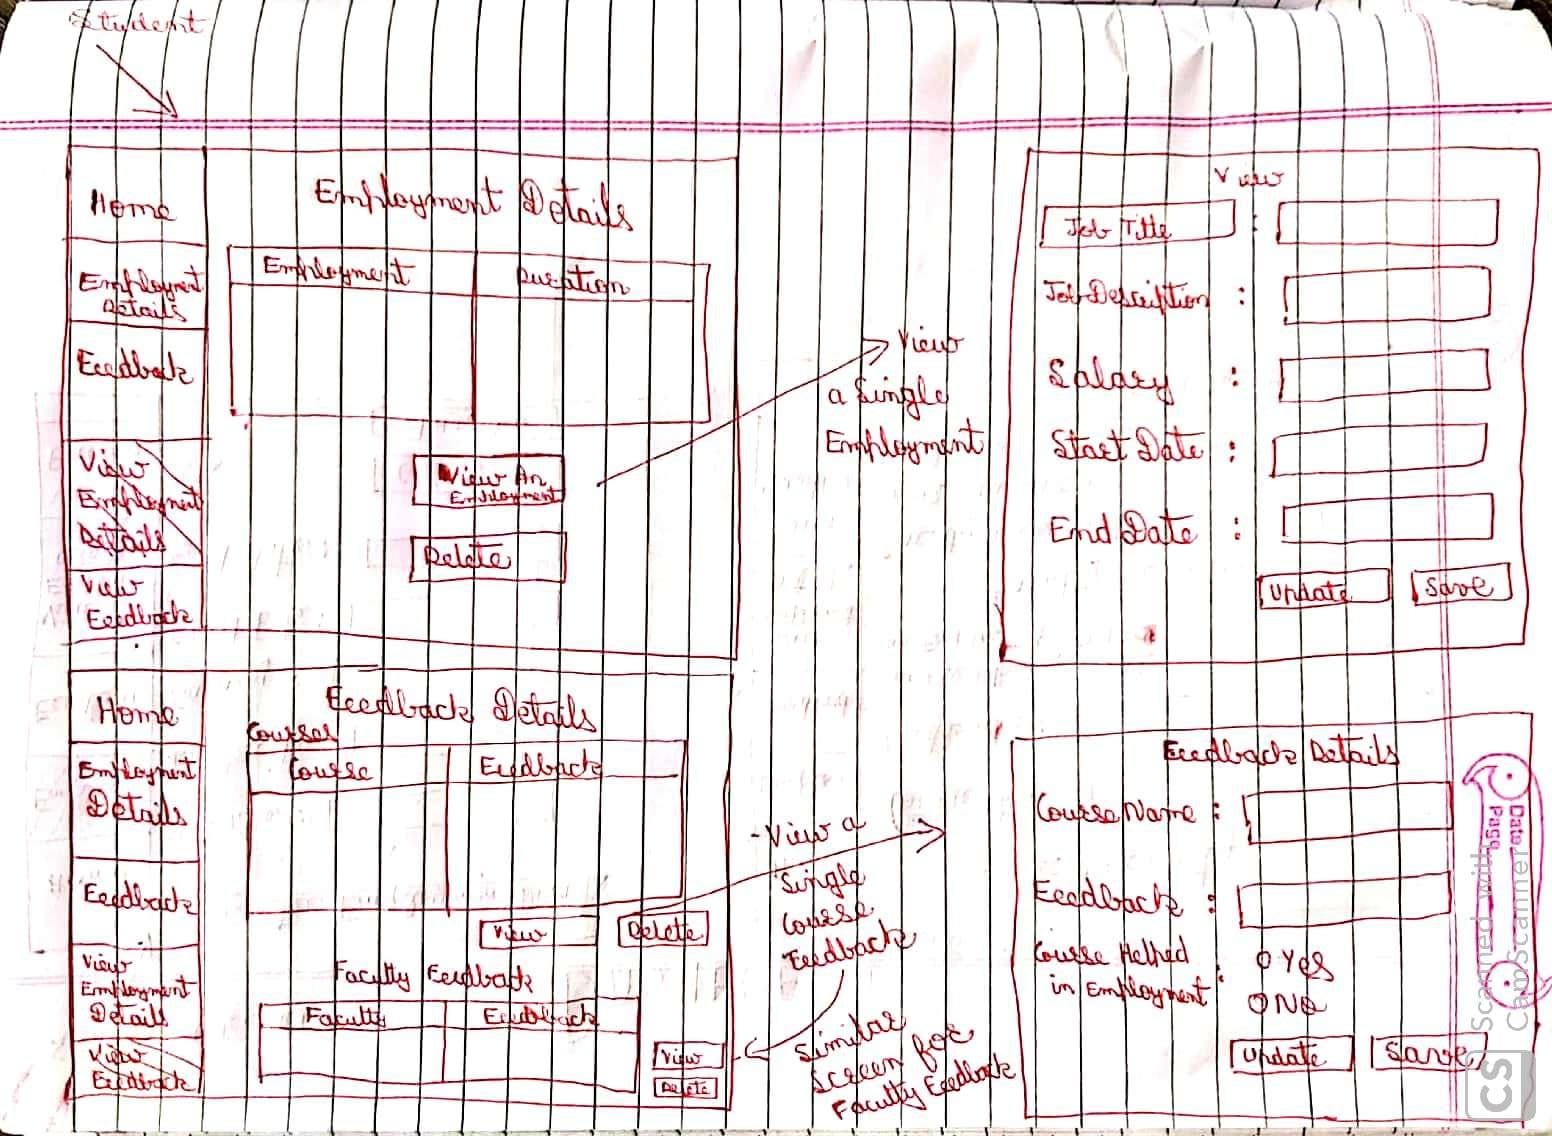 Student
Home
Employment
Details
Feedback
View
Employment
Details
View
Feedback
Employment Details
Employment Duration
View An
Employment
Delete
View
a Single
Employment
View
Job Title :
Job Description :
Salary :
Start Date :
End Date :
Update Save
Home
Employment
Details
Feedback
View
Employment
Details
View
Feedback
Feedback Details
Courses
Course Feedback
View Delete
Faculty Feedback
Faculty Feedback
View
Delete
- View a
Single
Course
Feedback
Similar
Screen for
Faculty Feedback
Feedback Details
Course Name :
Feedback :
Course Helped
in Employment :
Yes
No
Update Save
Date
Page
Scanned with
CamScanner
CS